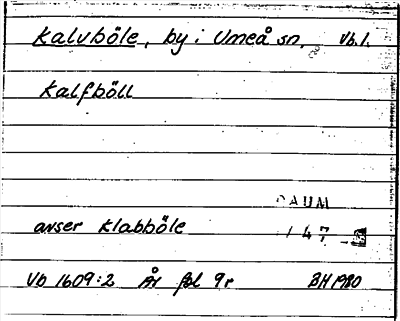 Kalvböle, by i Umeå sn. Vb.l.
Kalfböll
DAUM
avser Klabböle
147
Vb 1609:2 År fol 9r BH 1980